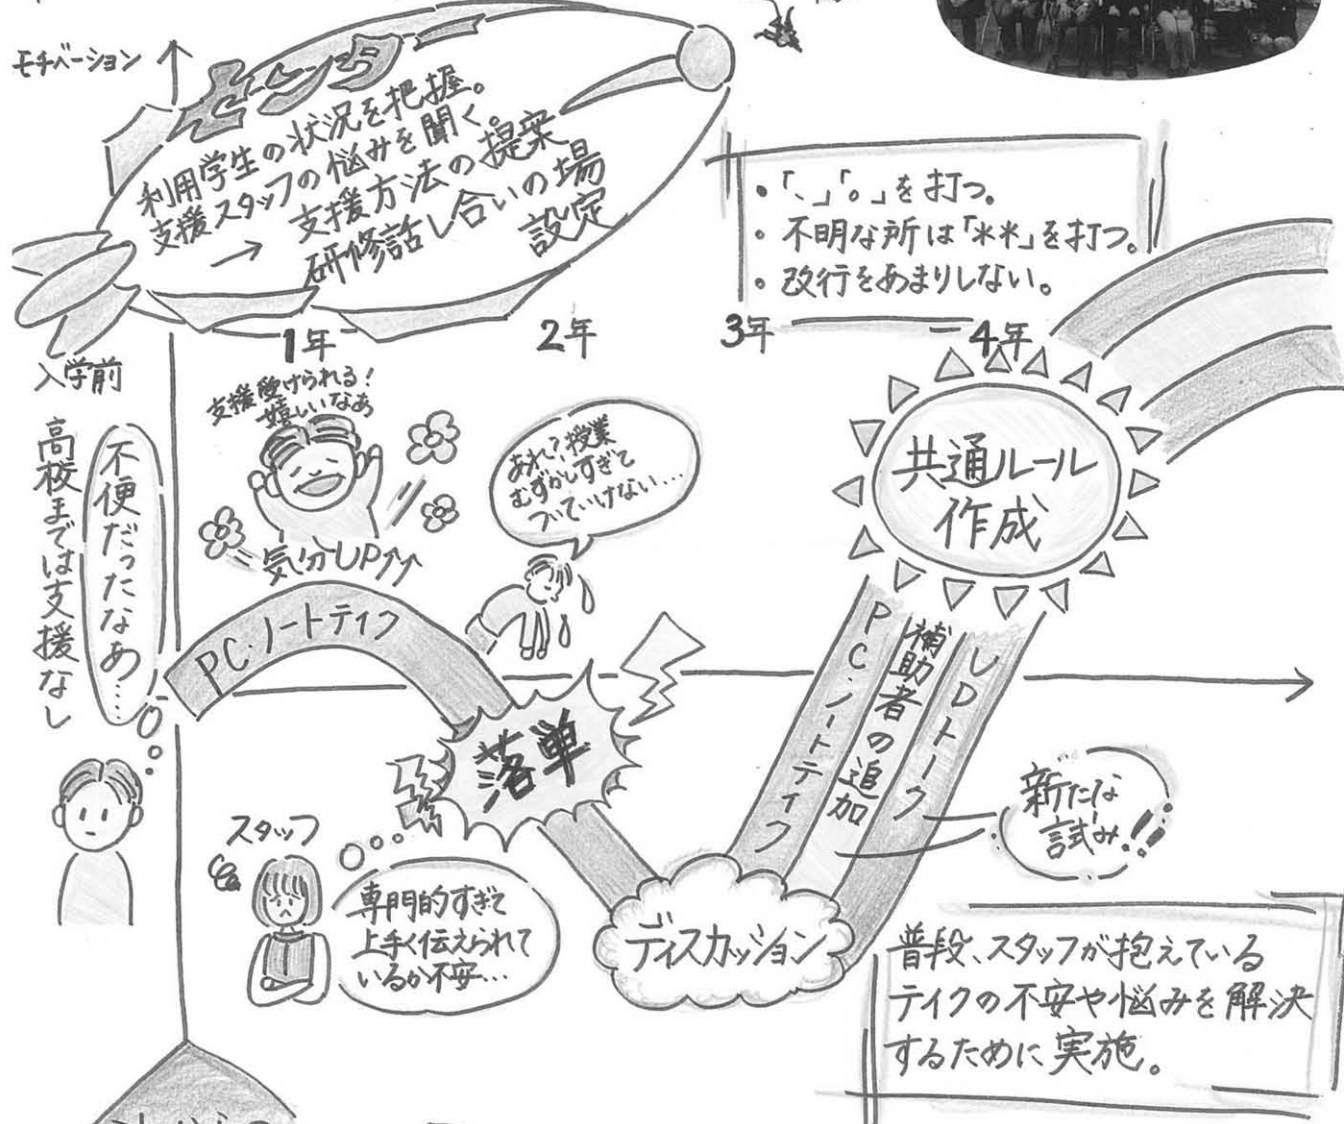 モチベーション
モーレンタ
利用学生の状況を把握。
支援スタッフの悩みを聞く。
→ 支援方法の提案
研修話し合いの場
設定
・「、」「。」を打つ。
・不明な所は「**」を打つ。
・改行をあまりしない。
入学前
1年
2年
3年
4年
高校までは支援なし
不便だったなあ…
支援受けられる!
嬉しいなあ
気分UP↑↑
あれ?授業
むずかしすぎて
ついていけない…
PC・ノートテイク
落単
スタッフ
専門的すぎて
上手く伝えられて
いるか不安…
ディスカッション
PC・ノートテイク
補助者の追加
UDトーク
共通ルール
作成
新たな
試み!!
普段、スタッフが抱えている
テイクの不安や悩みを解決
するために実施。